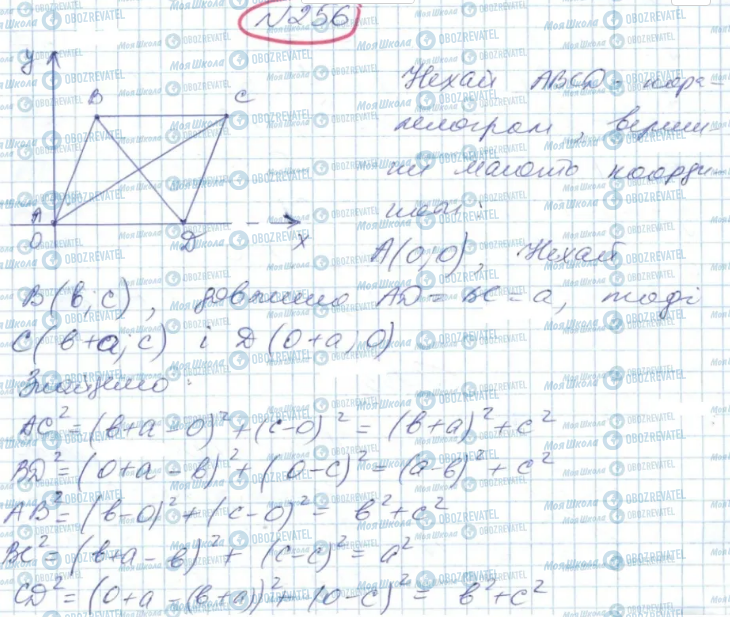 №256
y
B
C
A
O
D
x
Нехай ABCD - пара-
лелограм, верши-
ни мають коорди-
нати:
A(0;0), Нехай
B(в;c), довжина AD = BC = a, тоді
C(в+a;c) і D(0+a;0)
Знайдемо:
AC² = (в+a-0)² + (c-0)² = (в+a)² + c²
BD² = (0+a-в)² + (0-c)² = (a-в)² + c²
AB² = (в-0)² + (c-0)² = в² + c²
BC² = (в+a-в)² + (c-c)² = a²
CD² = (0+a-(в+a))² + (0-c)² = в² + c²
Моя Школа OBOZREVATEL